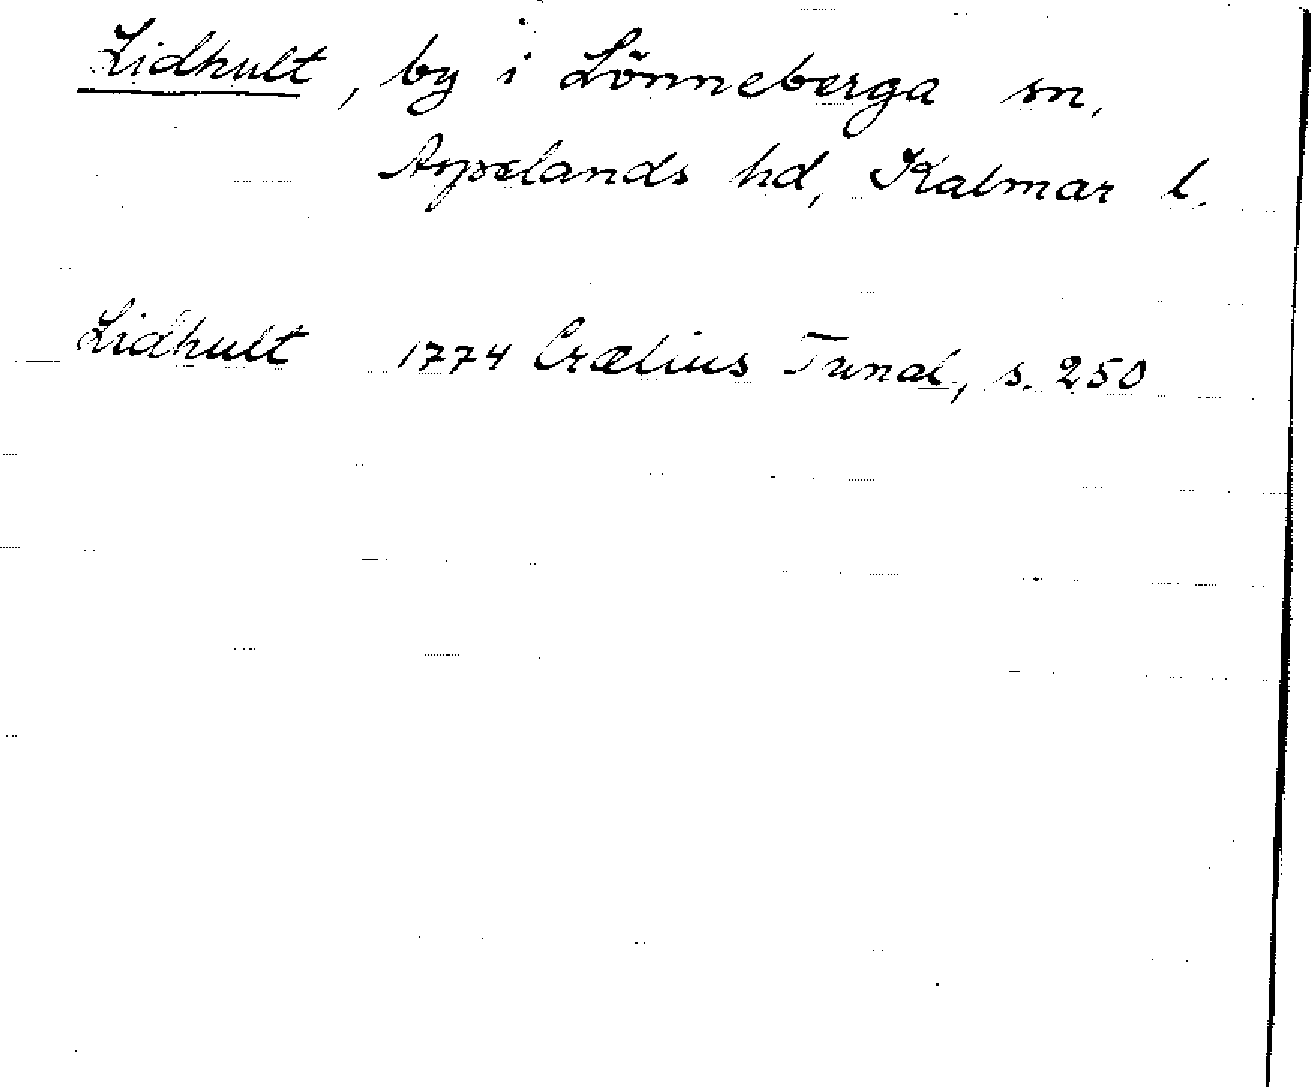 Lidhult, by i Lönneberga sn,
Aspelands hd, Kalmar l.
Lidhult 1774 Crælius Tund, s. 250